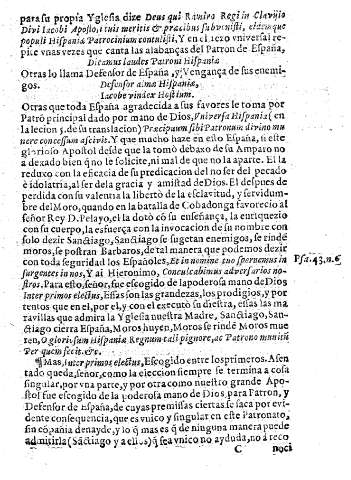 para su propia Yglesia dize Deus qui Ramiro Regi in Clavijo
Divi Iacobi Apostoli, tui meritis & præcibus subvenisti, eiusque
populi Hispania Patrocinium contulisti, Y en el rezo vniversal re-
pite vnas vezes que canta las alabanças del Patron de España,
Dicamus laudes Patroni Hispaniæ
Otras lo llama Defensor de España, y Vengança de sus enemi-
gos. Defensor alma Hispaniæ,
Iacobe vindex Hostium.
Otras que toda España agradecida a sus favores le toma por
Patrõ principal dado por mano de Dios, Vniversa Hispania (en
la lecion 5. de su translacion) Præcipuum sibi Patronum divino mu-
nere concessum ascivit. Y que mucho haze en ello España, si este
glorioso Apostol desde que la tomò debaxo de su Amparo no
a dexado bien q̃ no le solicite, ni mal de que no la aparte. El la
reduxo con la eficacia de su predicacion del no ser del pecado
è idolatria, al ser de la gracia y amistad de Dios. El despues de
perdida con su valentia la libertò de la esclavitud, y servidum-
bre del Moro, quando en la batalla de Cobadonga favoreciò al
señor Rey D. Pelayo, el la dotò cõ su enseñança, la enriqueziò
con su cuerpo, la esfuerça con la invocacion de su nombre con
solo dezir Sanctiago, Sanctiago se sugetan enemigos, se rindẽ
moros, se postran Barbaros, de tal manera que podemos dezir
con toda seguridad los Españoles, Et in nomine tuo spernemus in Psa. 43, n. 6
surgentes in nos, Y ai Hieronimo, Conculcabimus adversarios no-
stros. Para esto, señor, fue escogido de la poderosa mano de Dios
Inter primos electus, Essas son las grandezas, los prodigios, y por
tentos que en el, por el, y con el executò su diestra, essas las ma
ravillas que admira la Yglesia nuestra Madre, Sanctiago, Sanc-
tiago cierra España, Moros huyen, Moros se rindẽ Moros mue
ren, O gloriosum Hispaniæ Regnum tali pignore, ac Patrono munitũ
Per quem fecit. &c.
¶ Mas, Inter primos electus, Escogido entre los primeros. Asen
tado queda, señor, como la eleccion siempre se termina a cosa
singular, por vna parte, y por otra como nuestro grande Apo-
stol fue escogido de la poderosa mano de Dios, para Patron, y
Defensor de España, de cuyas premissas ciertas se saca por evi-
dente consequencia, que es vnico y singular en este Patronato,
sin cõpañia de nayde, y lo q̃ mas es q̃ de ninguna manera puede
admitirla (Sãctiago y a ellos) q̃ sea vnico no ay duda, no à reco
C noci